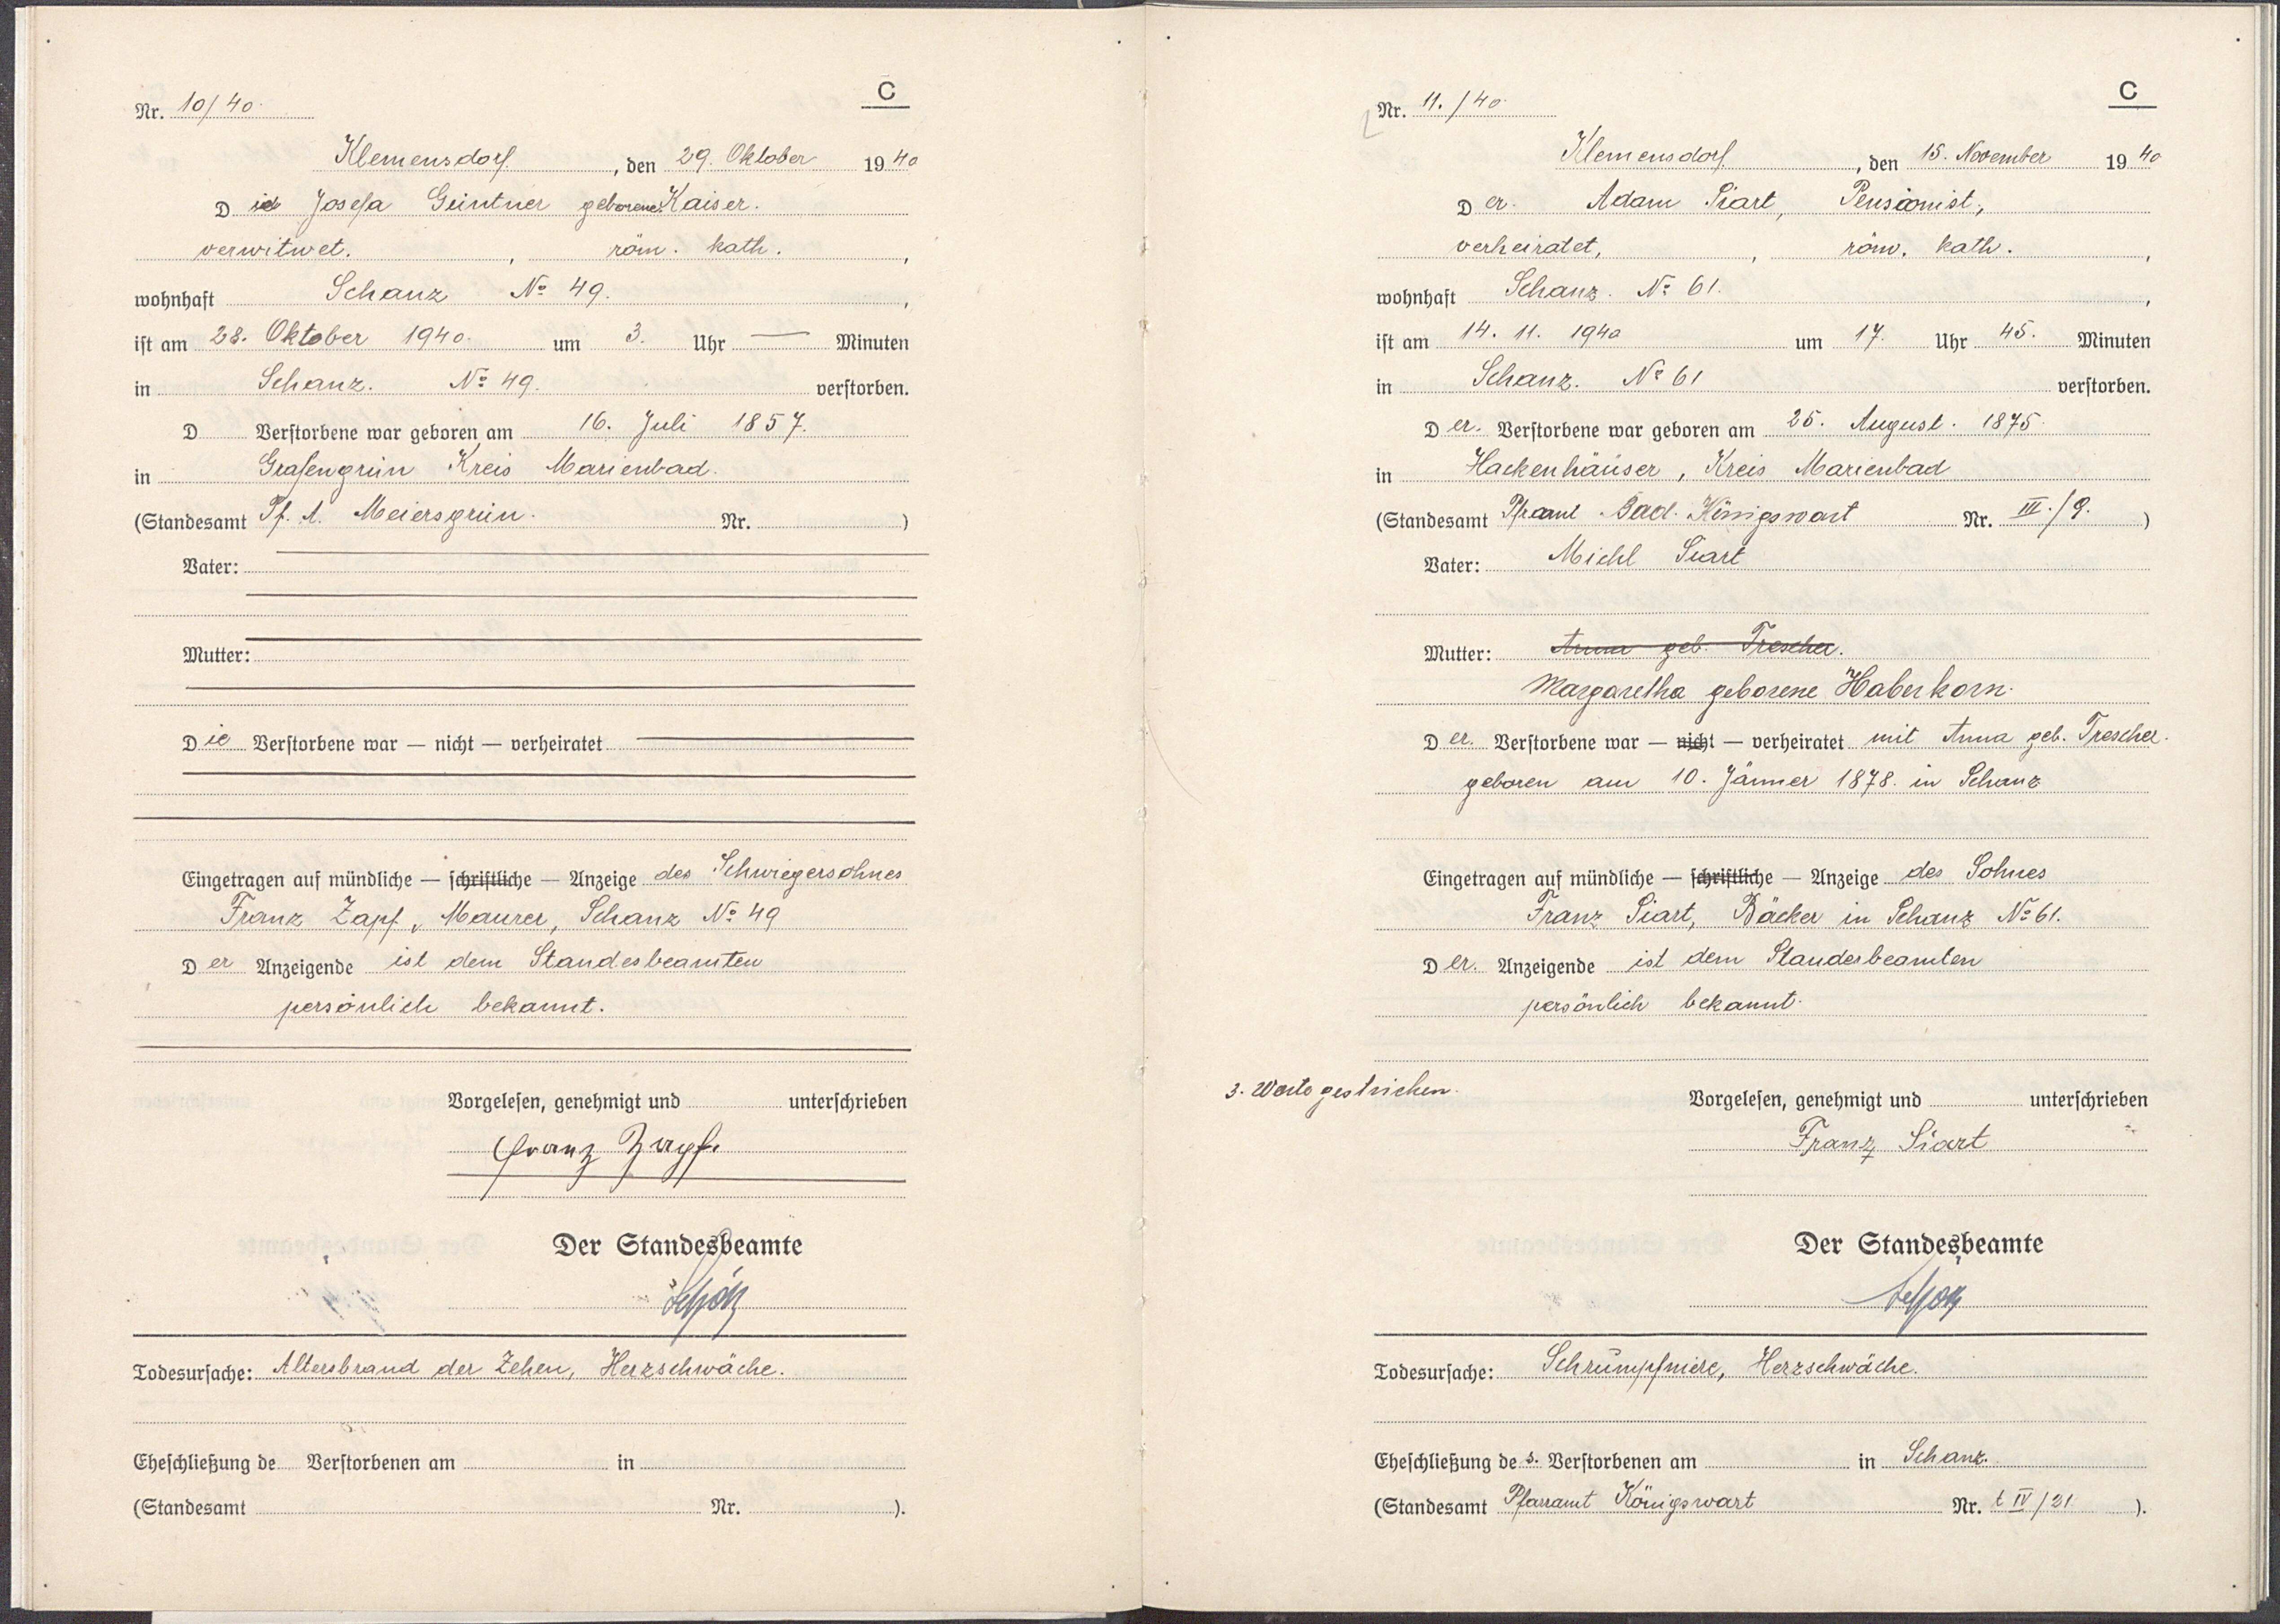 C
Nr. 10/40.
Klemensdorf, den 29. Oktober 1940
Die Josefa Güntner geborene Kaiser.
verwitwet. , röm. kath. ,
wohnhaft Schanz No 49. ,
ist am 28. Oktober 1940. um 3. Uhr — Minuten
in Schanz. No 49. verstorben.
D Verstorbene war geboren am 16. Juli 1857.
in Grafengrün Kreis Marienbad.
(Standesamt Pf. A. Meiersgrün. Nr. )
Vater:
Mutter:
Die Verstorbene war — nicht — verheiratet
Eingetragen auf mündliche — schriftliche — Anzeige des Schwiegersohnes
Franz Zapf, Maurer, Schanz No 49
Der Anzeigende ist dem Standesbeamten
persönlich bekannt.
Vorgelesen, genehmigt und unterschrieben
Franz Zapf.
Der Standesbeamte
Todesursache: Altersbrand der Zehen, Herzschwäche.
Eheschließung de Verstorbenen am in
(Standesamt Nr. ).
C
Nr. 11./40.
Klemensdorf, den 15. November 1940
Der. Adam Siart, Pensionist,
verheiratet, , röm. kath. ,
wohnhaft Schanz. No 61. ,
ist am 14. 11. 1940 um 17. Uhr 45. Minuten
in Schanz. No 61 verstorben.
Der. Verstorbene war geboren am 25. August. 1875.
in Hackenhäuser, Kreis Marienbad
(Standesamt Pframt Bad. Königswart Nr. III./9. )
Vater: Michl Siart
Mutter: Anna geb. Trescher.
Margaretha geborene Haberkorn.
Der. Verstorbene war — nicht — verheiratet mit Anna geb. Trescher.
geboren am 10. Jänner 1878. in Schanz
Eingetragen auf mündliche — schriftliche — Anzeige des Sohnes
Franz Siart, Bäcker in Schanz No 61.
Der. Anzeigende ist dem Standesbeamten
persönlich bekannt.
3. Worte gestrichen.
Vorgelesen, genehmigt und unterschrieben
Franz Siart
Der Standesbeamte
Todesursache: Schrumpfniere, Herzschwäche.
Eheschließung des. Verstorbenen am in Schanz.
(Standesamt Pfarramt Königswart Nr. t IV/21 ).